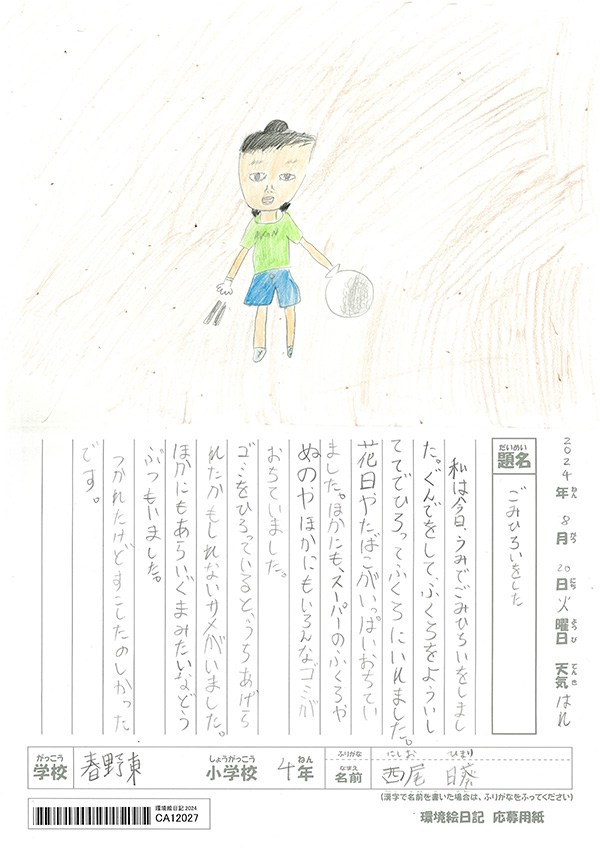 2024年 8月 20日 火曜日 天気 はれ
ねん がつ にち ようび てんき
だいめい
題名
ごみひろいをした
私は今日、うみでごみひろいをしまし
た。ぐんてをして、ふくろをよういし
ててでひろってふくろにいれました。
花日やたばこがいっぱいおちてい
ました。ほかにも、スーパーのふくろや
ぬのやほかにもいろんなゴミが
おちていました。
ゴミをひろっていると、うちあげら
れたかもしれないサメがいました。
ほかにもあらいぐまみたいなどう
ぶつもいました。
つかれたけどすこしたのしかった
です。
がっこう しょうがっこう ねん ふりがな にしお ひまり
学校 春野東 小学校 4年 なまえ 名前 西尾 日葵
(漢字で名前を書いた場合は、ふりがなをふってください)
環境絵日記2024
CA12027
環境絵日記 応募用紙